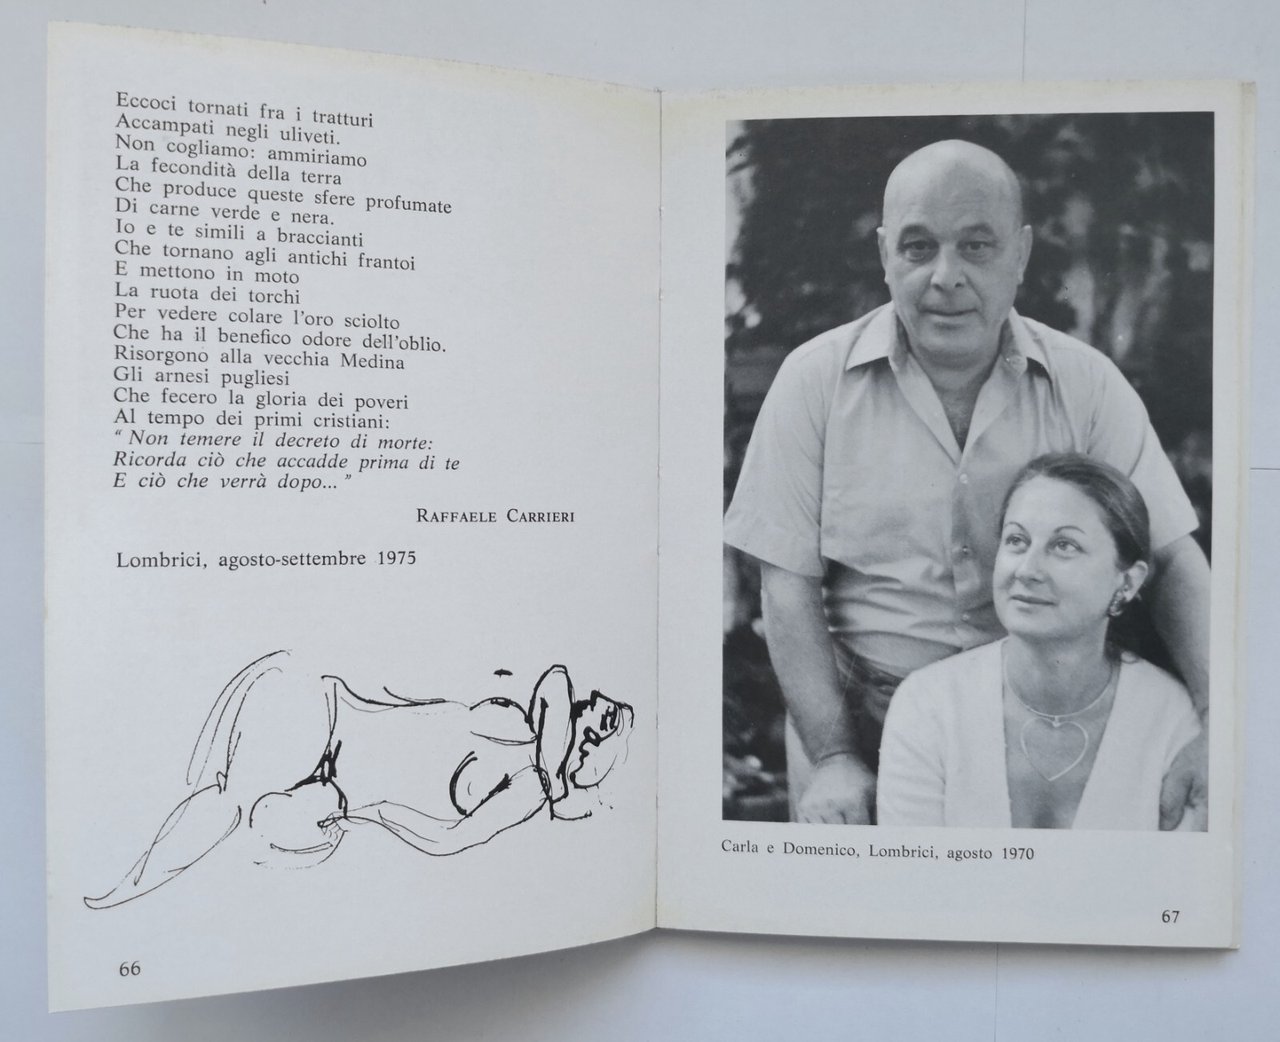 Eccoci tornati fra i tratturi
Accampati negli uliveti.
Non cogliamo: ammiriamo
La fecondità della terra
Che produce queste sfere profumate
Di carne verde e nera.
Io e te simili a braccianti
Che tornano agli antichi frantoi
E mettono in moto
La ruota dei torchi
Per vedere colare l'oro sciolto
Che ha il benefico odore dell'oblio.
Risorgono alla vecchia Medina
Gli arnesi pugliesi
Che fecero la gloria dei poveri
Al tempo dei primi cristiani:
“ Non temere il decreto di morte:
Ricorda ciò che accadde prima di te
E ciò che verrà dopo... ”
RAFFAELE CARRIERI
Lombrici, agosto-settembre 1975
66
Carla e Domenico, Lombrici, agosto 1970
67